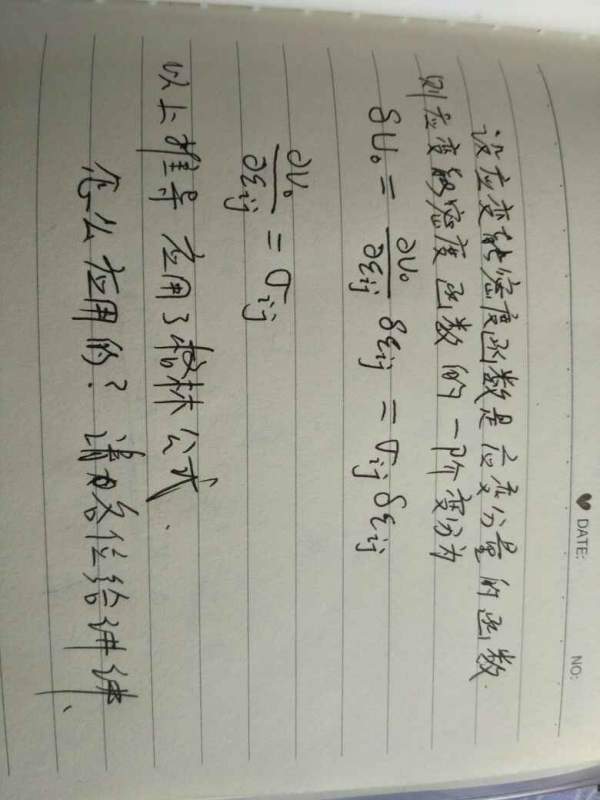 DATE:
NO:
设应变能密度函数是应变分量的函数.
则应变能密度函数的一阶变分为
δU₀ = ∂U₀/∂εij δεij = σij δεij
∂U₀/∂εij = σij
以上推导应用了格林公式.
怎么应用的? 请各位给讲讲.